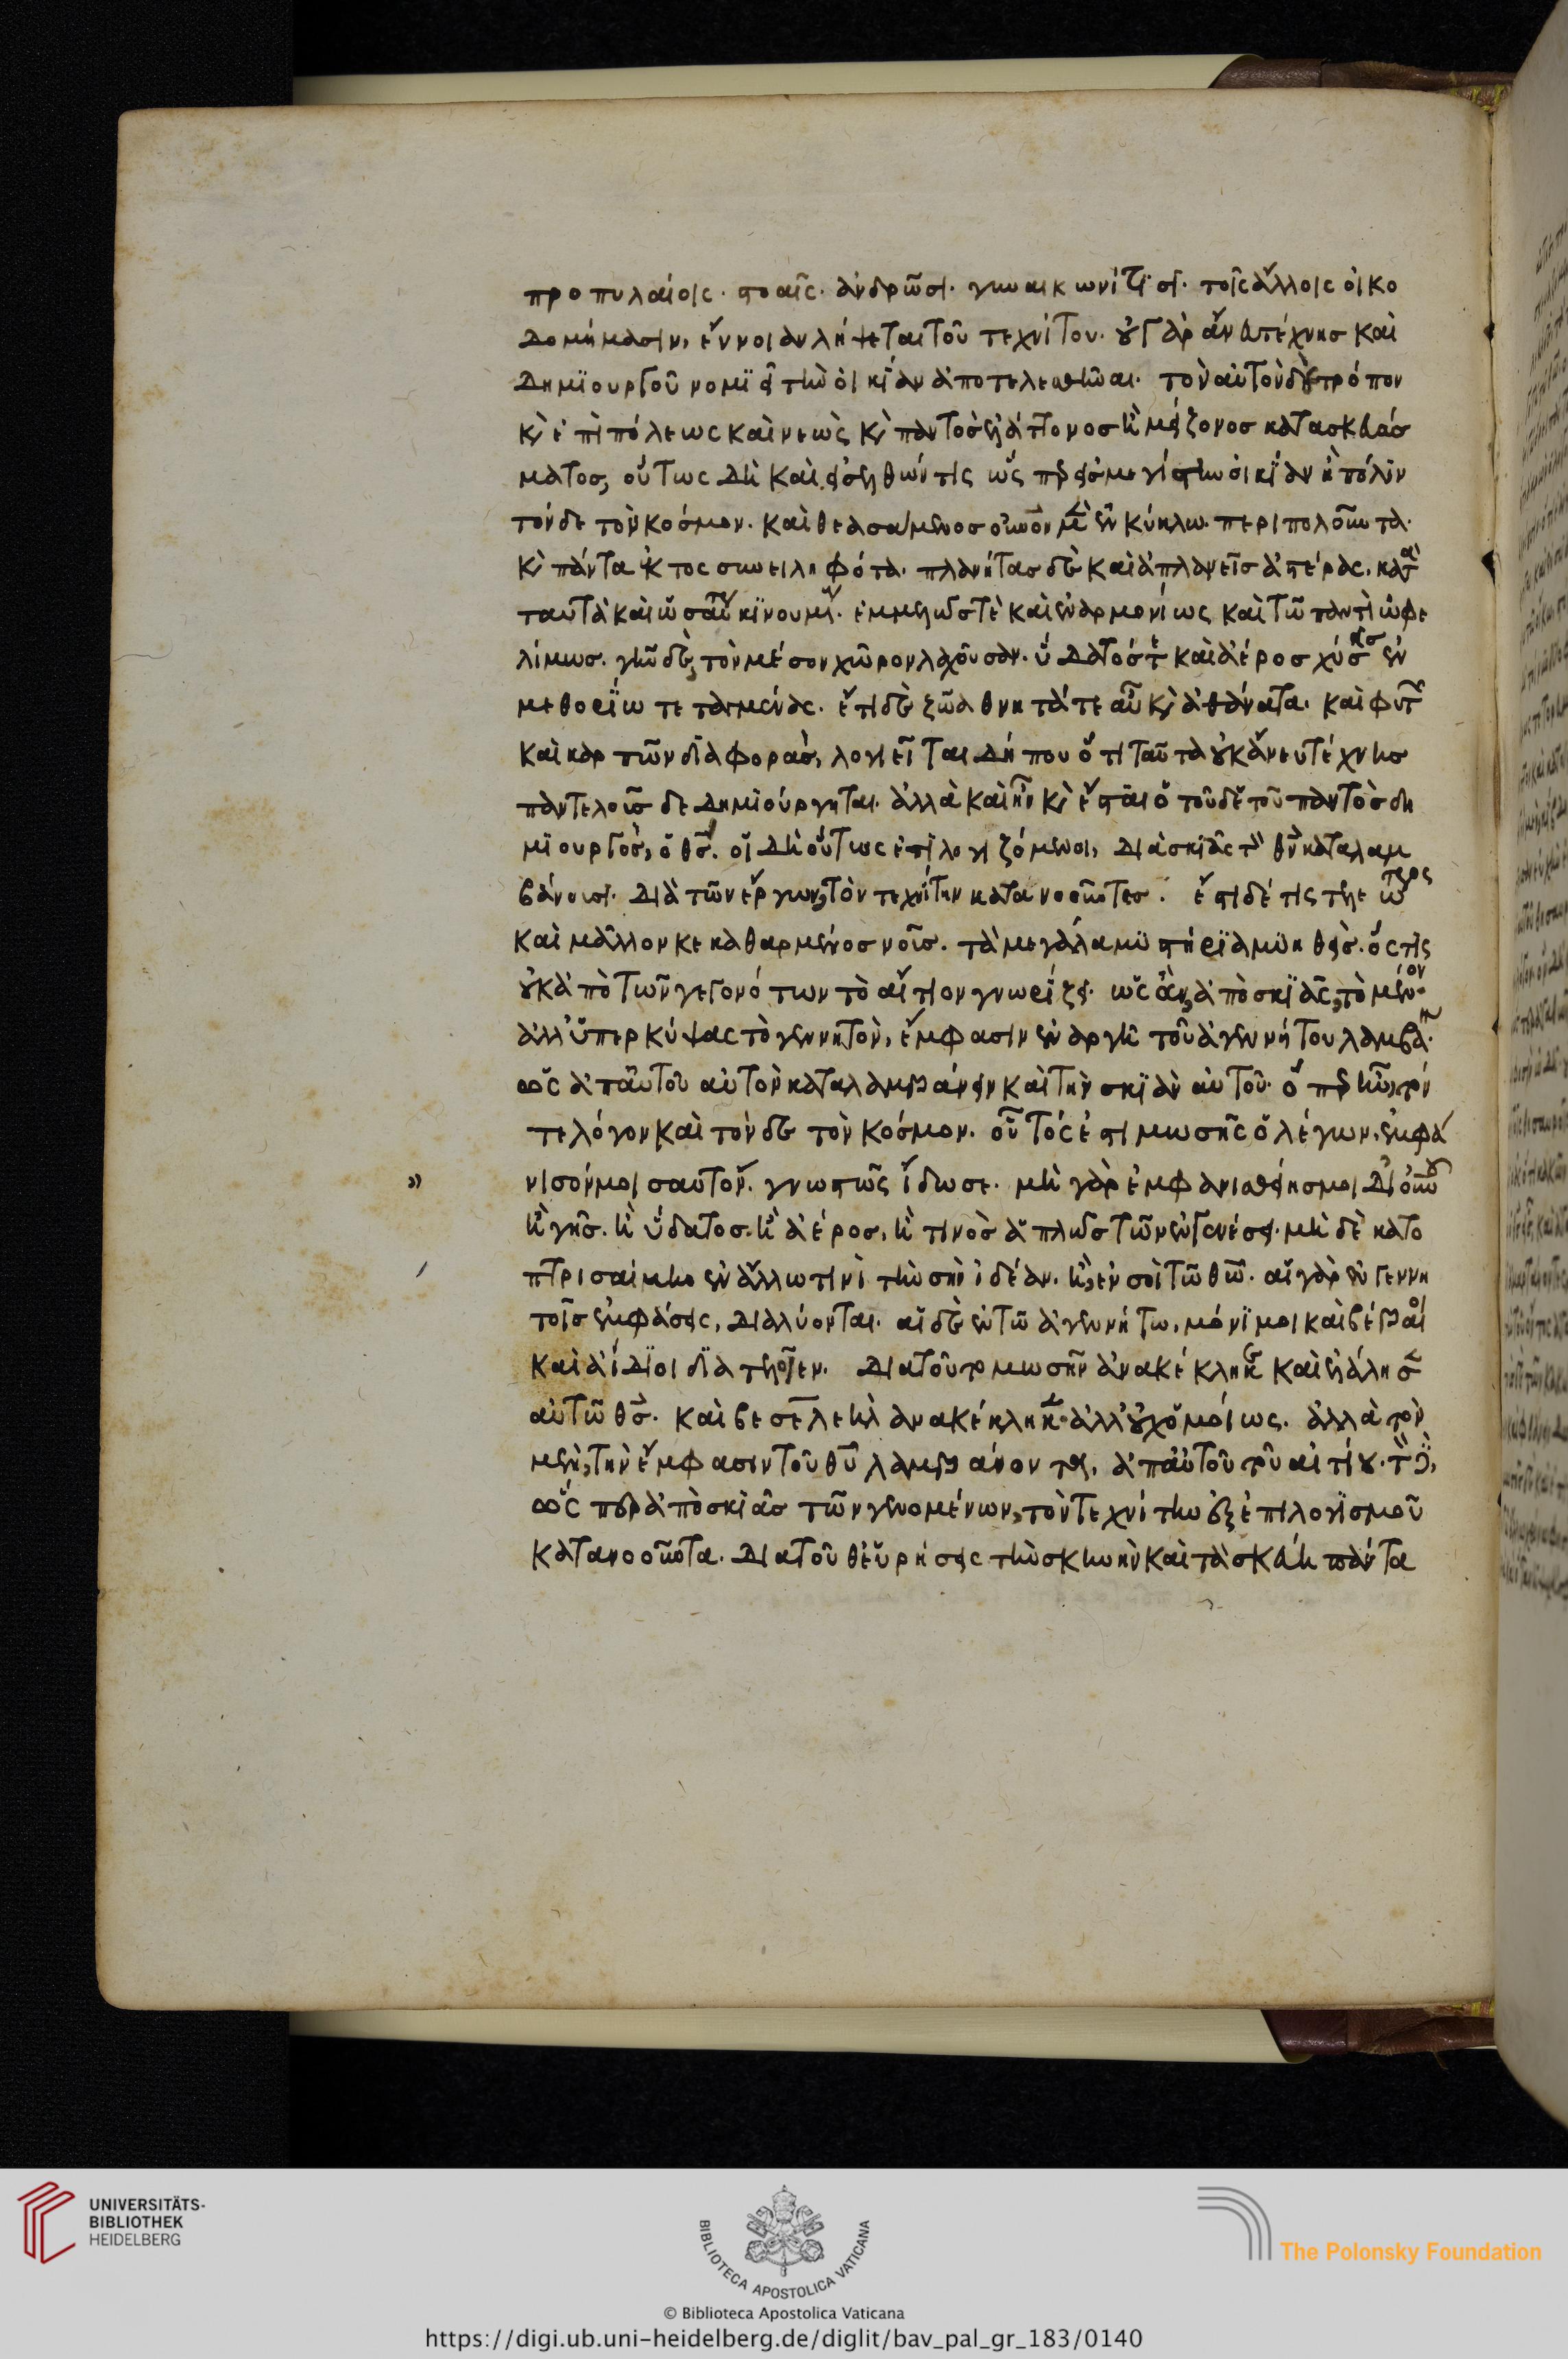 προπυλαίοις· στοαῖς· ἀνδρῶσι· γυναικωνίτισι· τοῖς ἄλλοις οἰκο
δομήμασιν, ἔννοιαν λήψεται τοῦ τεχνίτου· οὐ γὰρ ἂν ἄνευ τέχνης καὶ
δημϊουργοῦ νομϊεῖ τὴν οἰκίαν ἀποτελεσθῆναι· τὸν αὐτὸν δὲ τρόπον
κ ἐπὶ πόλεως καὶ νεὼς κ παντὸς ἐλάττονος ἢ μείζονος κατασκευάσ
ματος, οὕτως δὴ καὶ εἰσελθών τις ὡς εἰς μεγίστην οἰκίαν ἢ πόλιν
τόνδε τὸν κόσμον. καὶ θεασάμενος οὐνον μὲν ἐν κύκλω περιπολοῦντα·
κ πάντα ἐντὸς συνειληφότα· πλανήτας δὲ καὶ ἀπλανεῖς ἀστέρας. κατὰ
ταυτὰ καὶ ὡσαύτως κϊνουμένους· ἐμμελῶς τὲ καὶ ἐναρμονίως καὶ τῶ παντὶ ὠφε
λίμως. γῆν δὲ, τὸν μέσον χῶρον λαχοῦσαν· ὕδατός τε καὶ ἀέρος χύσεις ἐν
μεθορίω τεταγμένας· ἔτι δὲ ζῶα θνητά τε αὖ κ ἀθάνατα· καὶ φυτῶν
καὶ καρπῶν διαφορὰς, λογιεῖται δήπου ὅτι ταῦτα οὐκ ἄνευ τέχνης
παντελοῦς δεδημιούργηται· ἀλλὰ καὶ ἦν κ ἔστιν ὁ τοῦδε τοῦ παντὸς δη
μϊουργὸς, ὁ θς. οἱ δὴ οὕτως ἐπιλογιζόμενοι, διὰ σκιᾶς τὸν θν καταλαμ
βάνουσι· διὰ τῶν ἔργων, τὸν τεχνίτην κατανοοῦντες· ἔστι δέ τις τελεώτερος
καὶ μᾶλλον κεκαθαρμένος νοῦς. τὰ μεγάλα μυστήρια μυηθεὶς· ὅστις
οὐκ ἀπὸ τῶν γεγονότων τὸ αἴτιον γνωρίζει· ὡς ἂν ἀπὸ σκιᾶς, τὸ μένον·
ἀλλ' ὑπερκύψας τὸ γεννητὸν, ἔμφασιν ἐναργῆ τοῦ ἀγεννήτου λαμβάνει·
ὡς ἀπ' αὐτοῦ αὐτὸν καταλαμβάνειν καὶ τὴν σκϊὰν αὐτοῦ· ὅπερ ἦν, τόν
τε λόγον καὶ τόνδε τὸν κόσμον. οὗτός ἐστι μωσῆς ὁ λέγων, ἐμφά
» νισόν μοι σαυτόν. γνωστῶς ἴδω σε· μὴ γὰρ ἐμφανισθείης μοι δι' οὐνοῦ
ἢ γῆς· ἢ ὕδατος· ἢ ἀέρος, ἤ τινος ἁπλῶς τῶν ἐν γενέσει· μὴ δὲ κατο
πτρισαίμην ἐν ἄλλω τινὶ τὴν σὴν ἰδέαν· ἢ, ἐν σοὶ τῶ θω· αἱ γὰρ ἐν γεννη
τοῖς ἐμφάσεις, διαλύονται· αἱ δὲ ἐν τῶ ἀγεννήτω, μόνϊμοι καὶ βέβαιοι
καὶ ἀΐδϊοι διατελοῖεν. διὰ τοῦτο μωσῆν ἀνακέκληκε καὶ ἐλάλησεν
αὐτῶ θς. καὶ βεσελεὴλ ἀνακέκληκεν· ἀλλ' οὐχ ὁμοίως. ἀλλὰ τὸν
μὲν, τὴν ἔμφασιν τοῦ θυ λαμβάνοντα, ἀπ' αὐτοῦ τοῦ αἰτίου· τὸν δὲ,
ὥσπερ ἀπὸ σκιᾶς τῶν γενομένων, τὸν τεχνίτην ἐξ ἐπιλογϊσμοῦ
κατανοοῦντα. διὰ τοῦθ' εὑρήσεις τὴν σκηνὴν καὶ τὰ σκεύη πάντα
UNIVERSITÄTS-
BIBLIOTHEK
HEIDELBERG
BIBLIOTECA APOSTOLICA VATICANA
The Polonsky Foundation
© Biblioteca Apostolica Vaticana
https://digi.ub.uni-heidelberg.de/diglit/bav_pal_gr_183/0140